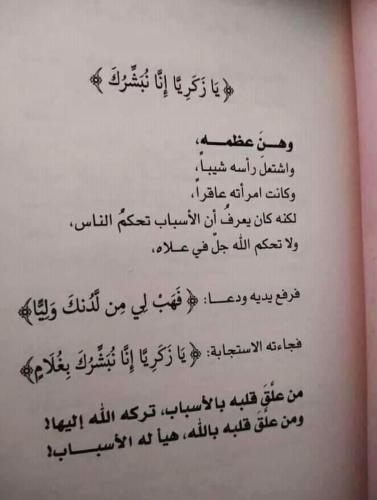 ﴿ يَا زَكَرِيَّا إِنَّا نُبَشِّرُكَ ﴾
وهـنَ عظمـــه،
واشتعلَ رأسه شيباً،
وكانت امرأته عاقراً،
لكنه كان يعرفُ أن الأسباب تحكمُ الناس،
ولا تحكم الله جلّ في علاه،
فرفع يديه ودعـا: ﴿ فَهَبْ لِي مِن لَّدُنكَ وَلِيًّا ﴾
فجاءته الاستجابة: ﴿ يَا زَكَرِيَّا إِنَّا نُبَشِّرُكَ بِغُلَامٍ ﴾
من علَّقَ قلبه بالأسباب، تركه الله إليها!
ومن علَّقَ قلبه بالله، هيأ له الأسـبـــاب!